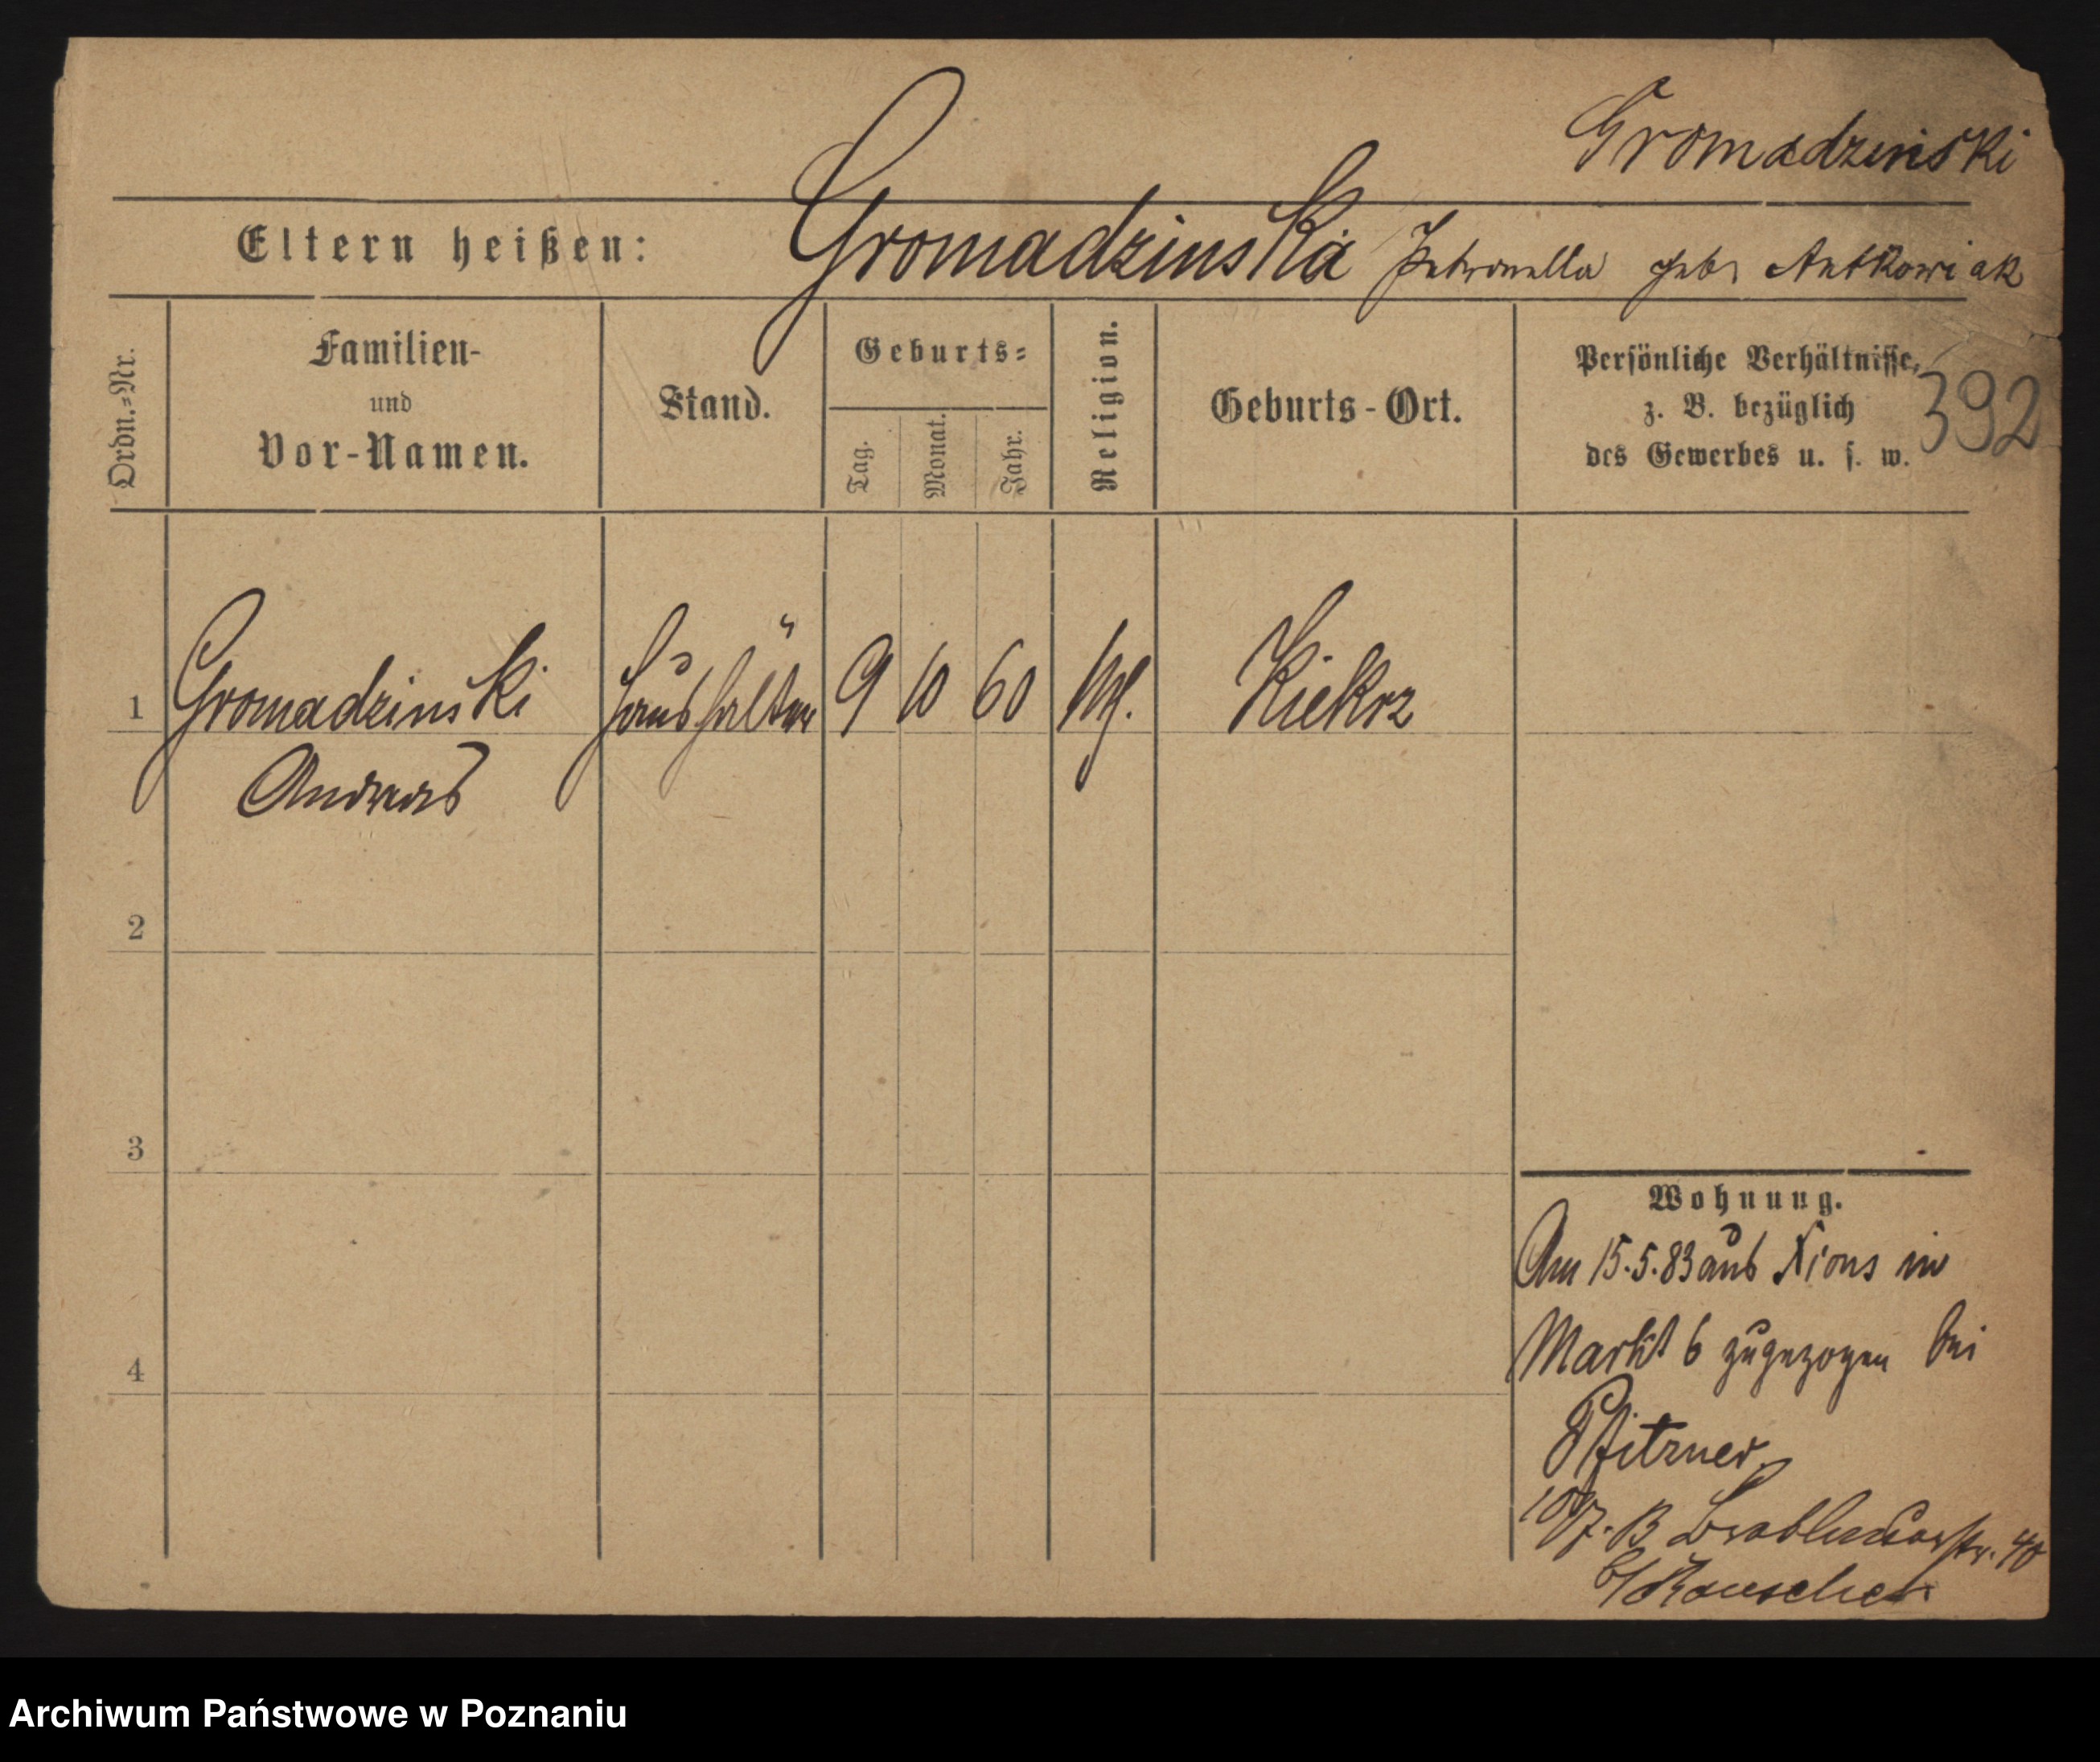 Gromadzinski
Eltern heißen: Gromadzinska Petronella geb. Antkowiak
Ordn.=Nr.
Familien-
und
Vor-Namen.
Stand.
Geburts=
Tag. Monat. Jahr.
Religion.
Geburts-Ort.
Persönliche Verhältnisse,
z. B. bezüglich
des Gewerbes u. s. w.
392
1 Gromadzinski Haushälter 9 10 60 Kiekrz
Andreas
2
3
4
Wohnung.
Am 15.5.83 aus Xions in
Markt 6 zugezogen bei
Pfitzner
40
Archiwum Państwowe w Poznaniu